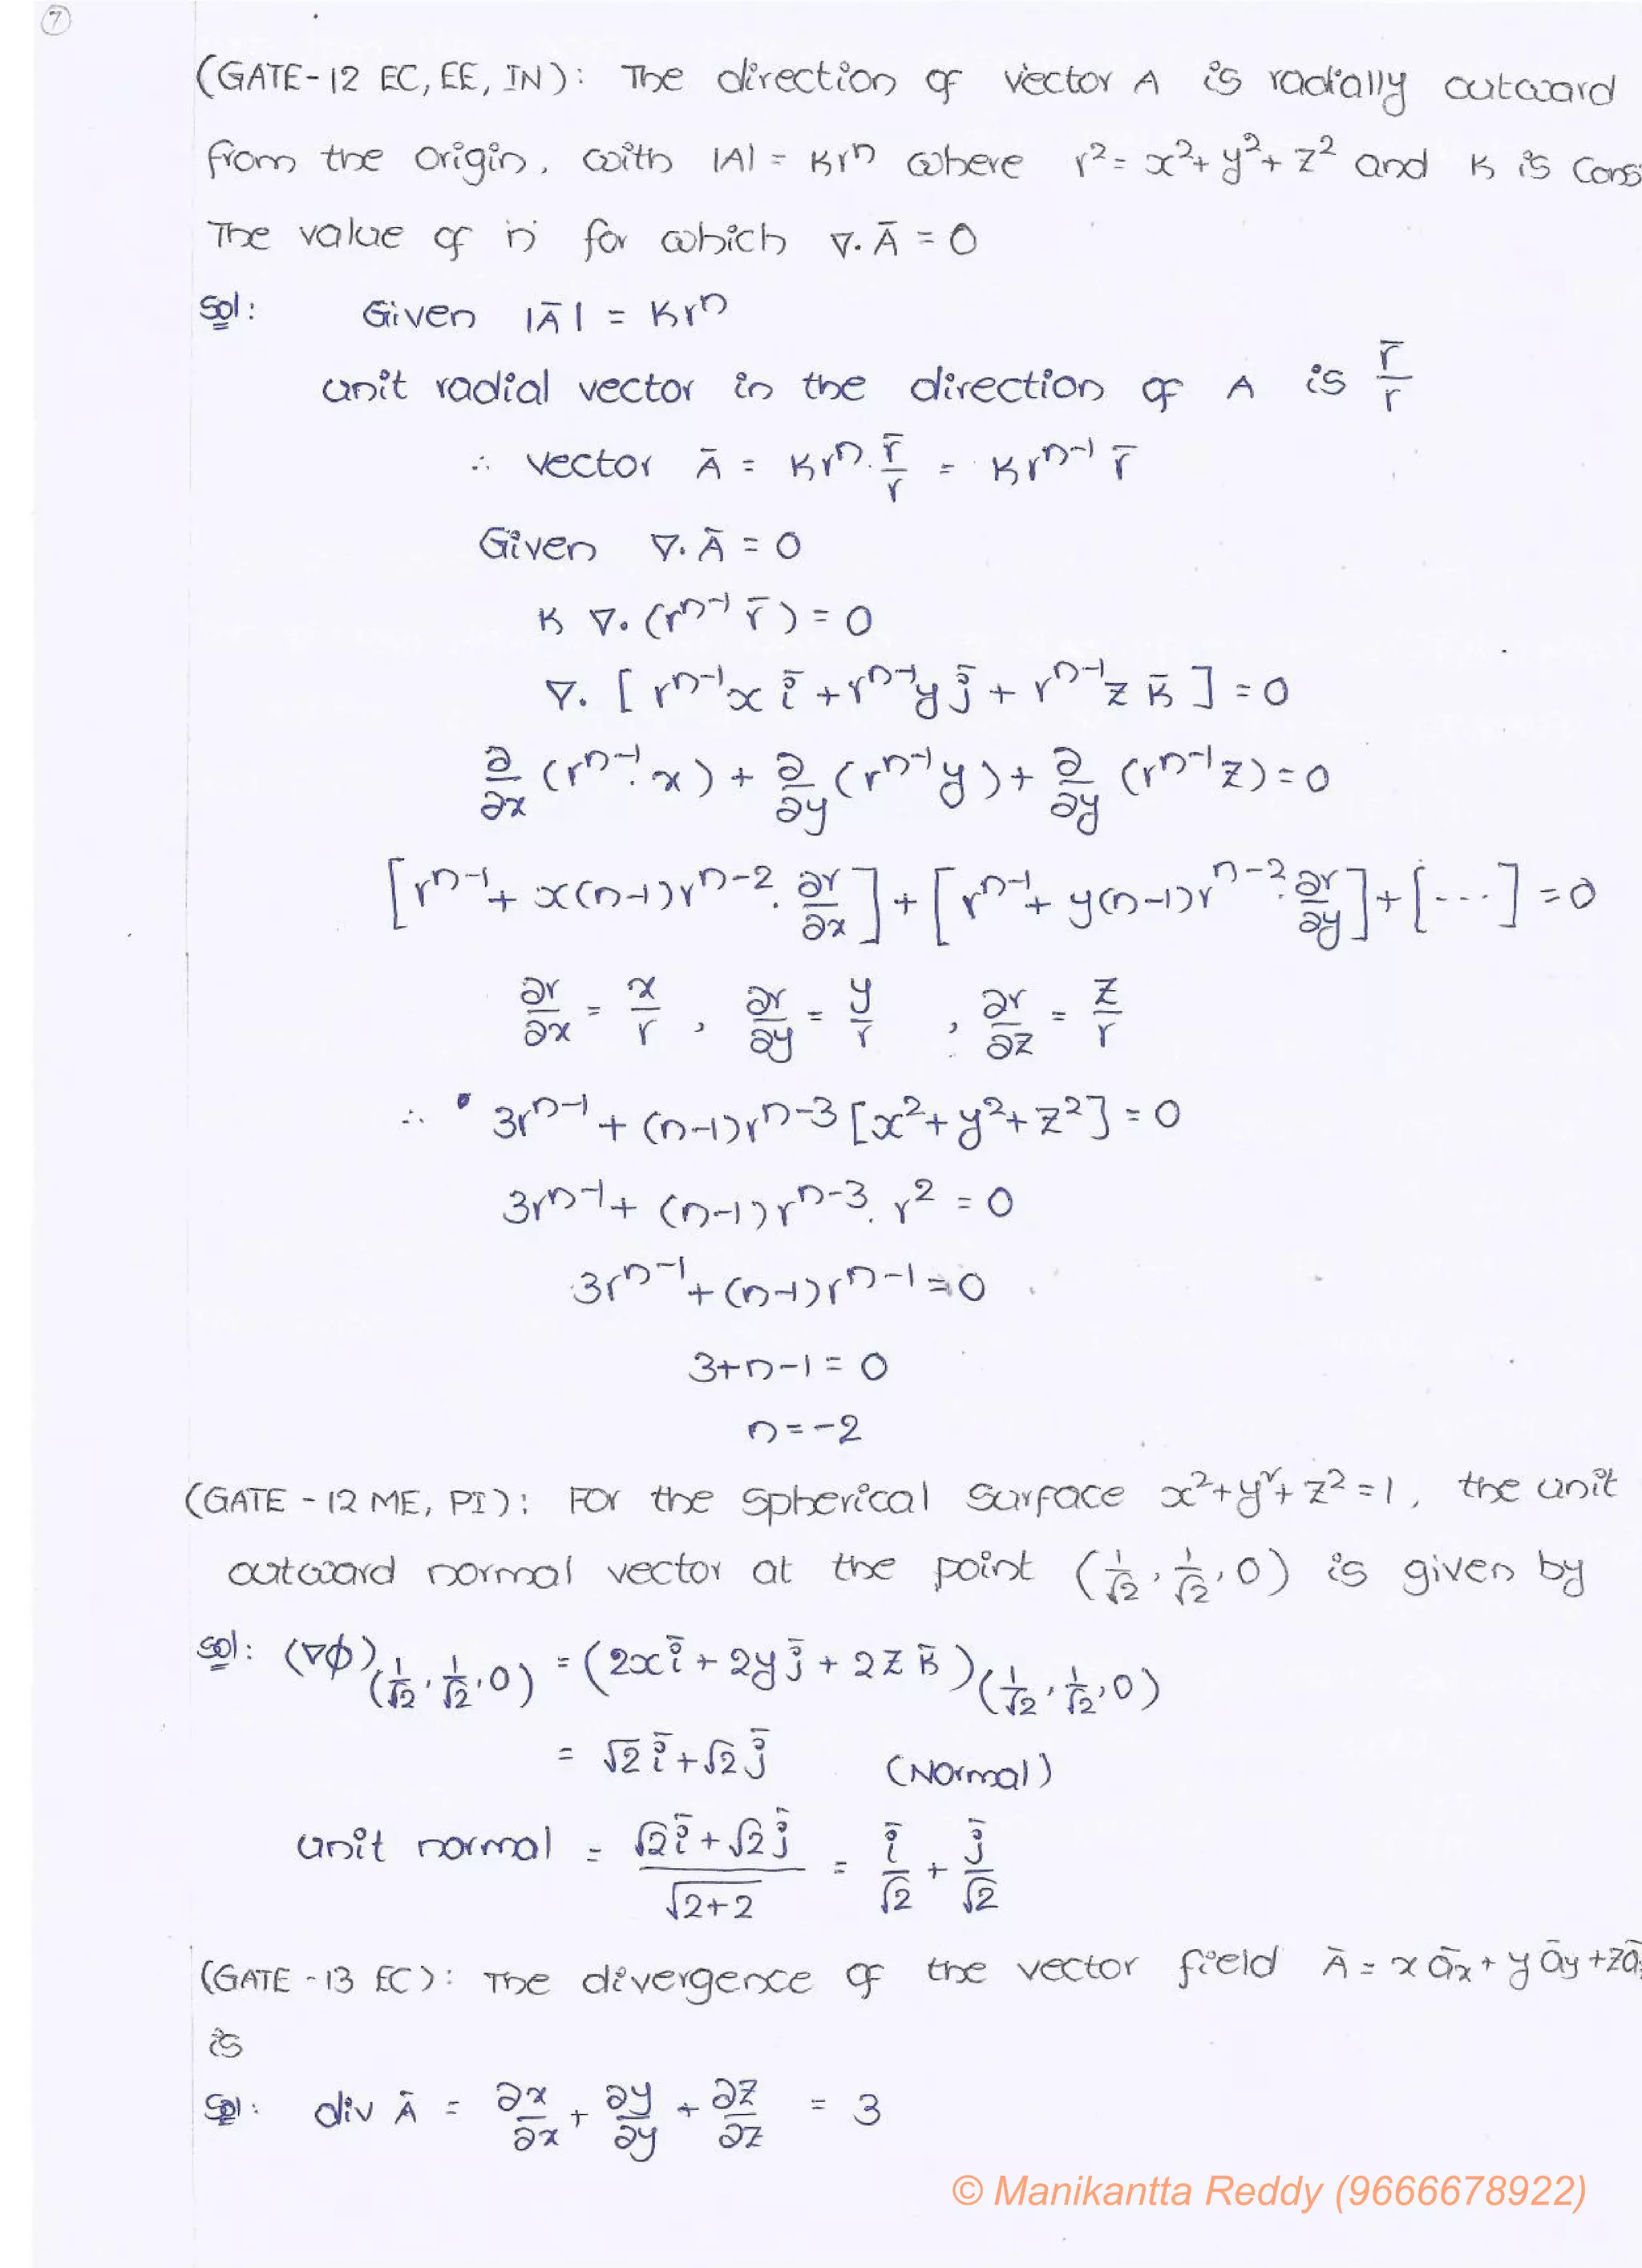 7
(GATE-12 EC, EE, IN): The direction of vector A is radially outward
from the origin, with |A| = Krⁿ where r² = x²+y²+z² and K is Cons
The value of 'n' for which ∇.Ā = 0
Sol: Given |Ā| = Krⁿ
unit radial vector in the direction of A is r̄/r
∴ vector Ā = Krⁿ. r̄/r = Krⁿ⁻¹ r̄
Given ∇.Ā = 0
K ∇.(rⁿ⁻¹ r̄) = 0
∇.[rⁿ⁻¹x ī + rⁿ⁻¹y j̄ + rⁿ⁻¹z k̄] = 0
∂/∂x (rⁿ⁻¹.x) + ∂/∂y (rⁿ⁻¹y) + ∂/∂y (rⁿ⁻¹z) = 0
[rⁿ⁻¹ + x(n-1)rⁿ⁻². ∂r/∂x] + [rⁿ⁻¹ + y(n-1)rⁿ⁻². ∂r/∂y] + [---] = 0
∂r/∂x = x/r , ∂r/∂y = y/r , ∂r/∂z = z/r
∴ 3rⁿ⁻¹ + (n-1)rⁿ⁻³[x²+y²+z²] = 0
3rⁿ⁻¹ + (n-1)rⁿ⁻³. r² = 0
3rⁿ⁻¹ + (n-1)rⁿ⁻¹ = 0
3+n-1 = 0
n = -2
(GATE-12 ME, PI): For the spherical surface x²+y²+z² = 1, the unit
outward normal vector at the point (1/√2, 1/√2, 0) is given by
Sol: (∇φ)(1/√2, 1/√2, 0) = (2xī + 2yj̄ + 2zk̄)(1/√2, 1/√2, 0)
= √2 ī + √2 j̄ (Normal)
unit normal = (√2ī + √2j̄)/√(2+2) = ī/√2 + j̄/√2
(GATE-13 EC): The divergence of the vector field Ā = x āx + y āy + z ā
is
Sol: div Ā = ∂x/∂x + ∂y/∂y + ∂z/∂z = 3
© Manikantta Reddy (9666678922)